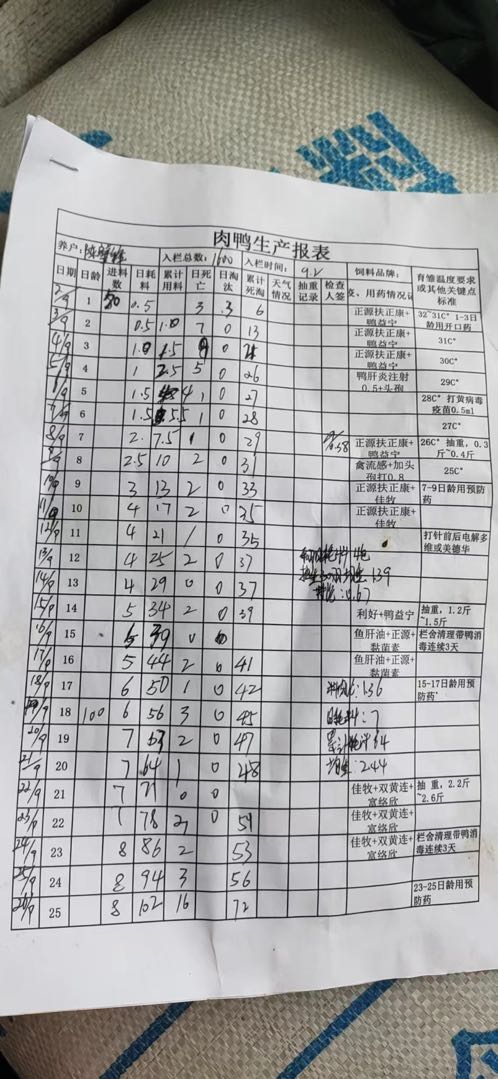 肉鸭生产报表
养户: 入栏总数: 1600 入栏时间: 9.2 饲料品牌: 育雏温度要求或其他关键点标准
日期 日龄 进料数 日耗料 累计用料 日死亡 日淘汰 累计死淘 天气情况 抽重记录 检查人签 疫、用药情况记
2/9 1 50 0.5 3 3 6 正源扶正康+鸭益宁 32~31C° 1-3日龄用开口药
3/9 2 0.5 1.0 7 0 13 正源扶正康+鸭益宁 31C°
4/9 3 1.0 0 正源扶正康+鸭益宁 30C°
5/9 4 1 2.5 5 0 26 鸭肝炎注射0.5+头孢 29C°
5 1.5 4 1 0 27 28C° 打黄病毒疫苗0.5ml
6 1.5 5.5 1 0 28 27C°
8/9 7 2. 7.5 1 0 29 正源扶正康+鸭益宁 26C° 抽重, 0.3斤~0.4斤
9/9 8 2.5 10 2 0 31 禽流感+加头孢打0.8 25C°
10/9 9 3 13 2 0 33 正源扶正康+佳牧 7-9日龄用预防药
11/9 10 4 17 2 0 35
12/9 11 4 21 1 0 35 打针前后电解多维或美德华
13/9 12 4 25 2 0 37
14/9 13 4 29 0 0 37
15/9 14 5 34 2 0 39 利好+鸭益宁 抽重, 1.2斤~1.5斤
16/9 15 39 0 鱼肝油+正源+黏菌素 栏舍清理带鸭消毒连续3天
17/9 16 5 44 2 0 41 鱼肝油+正源+黏菌素
18/9 17 6 50 1 0 42 1.36 15-17日龄用预防药
19/9 18 100 6 56 3 0 45 日耗料: 7
20/9 19 7 63 2 0 47 累计耗料 64
21/9 20 7 64 1 0 48 2.44
22/9 21 7 71 0 0 佳牧+双黄连+富络欣 抽 重, 2.2斤~2.6斤
23/9 22 78 0 佳牧+双黄连+富络欣
24/9 23 8 86 2 53 佳牧+双黄连+富络欣 栏舍清理带鸭消毒连续3天
25/9 24 8 94 3 56
26/9 25 8 102 16 72 23-25日龄用预防药